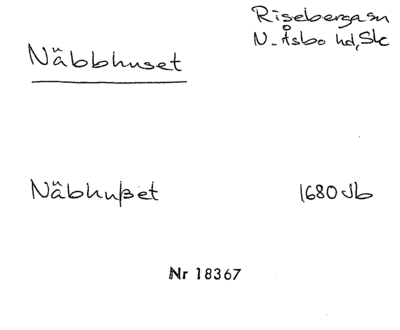 Risebergasn
Näbbhuset N. Åsbo hd, Sk
Näbhußet 1680 Jb
Nr 18367